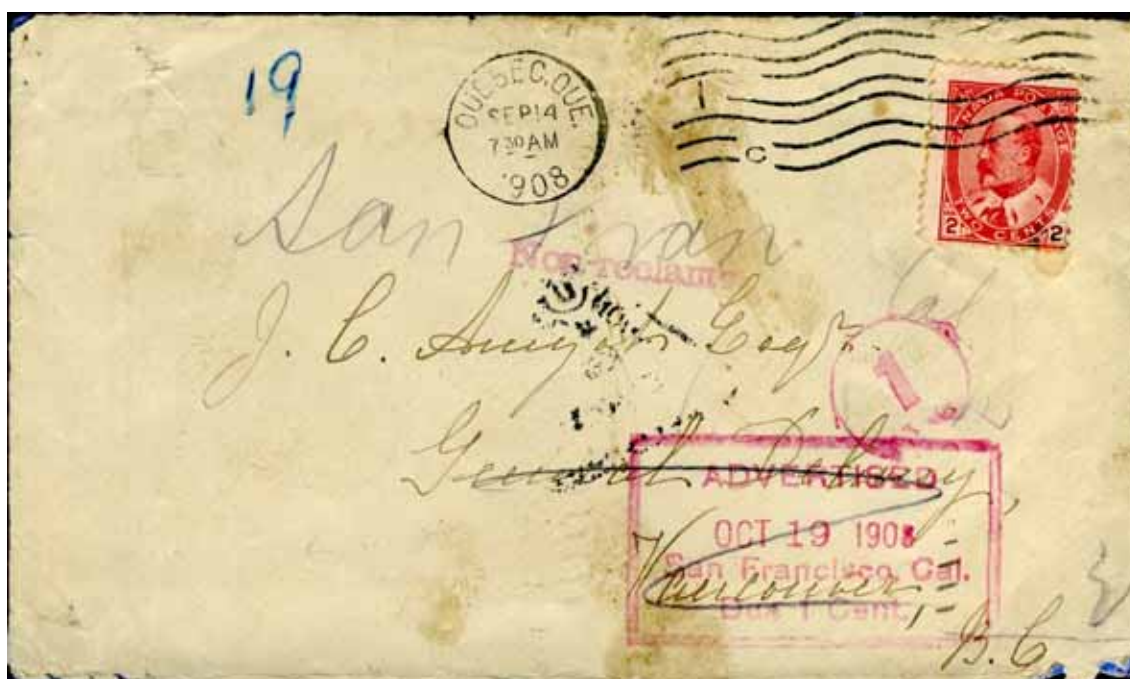 19
QUEBEC, QUE.
SEP 14
7 30 AM
1908
C
CANADA POSTAGE
2 TWO CENTS 2
San Fran
Cal
Non-reclamé
J. C. Esqr.
1
General Delivery,
ADVERTISED
OCT 19 1908
San Francisco, Cal.
Due 1 Cent.
Vancouver,
B. C.